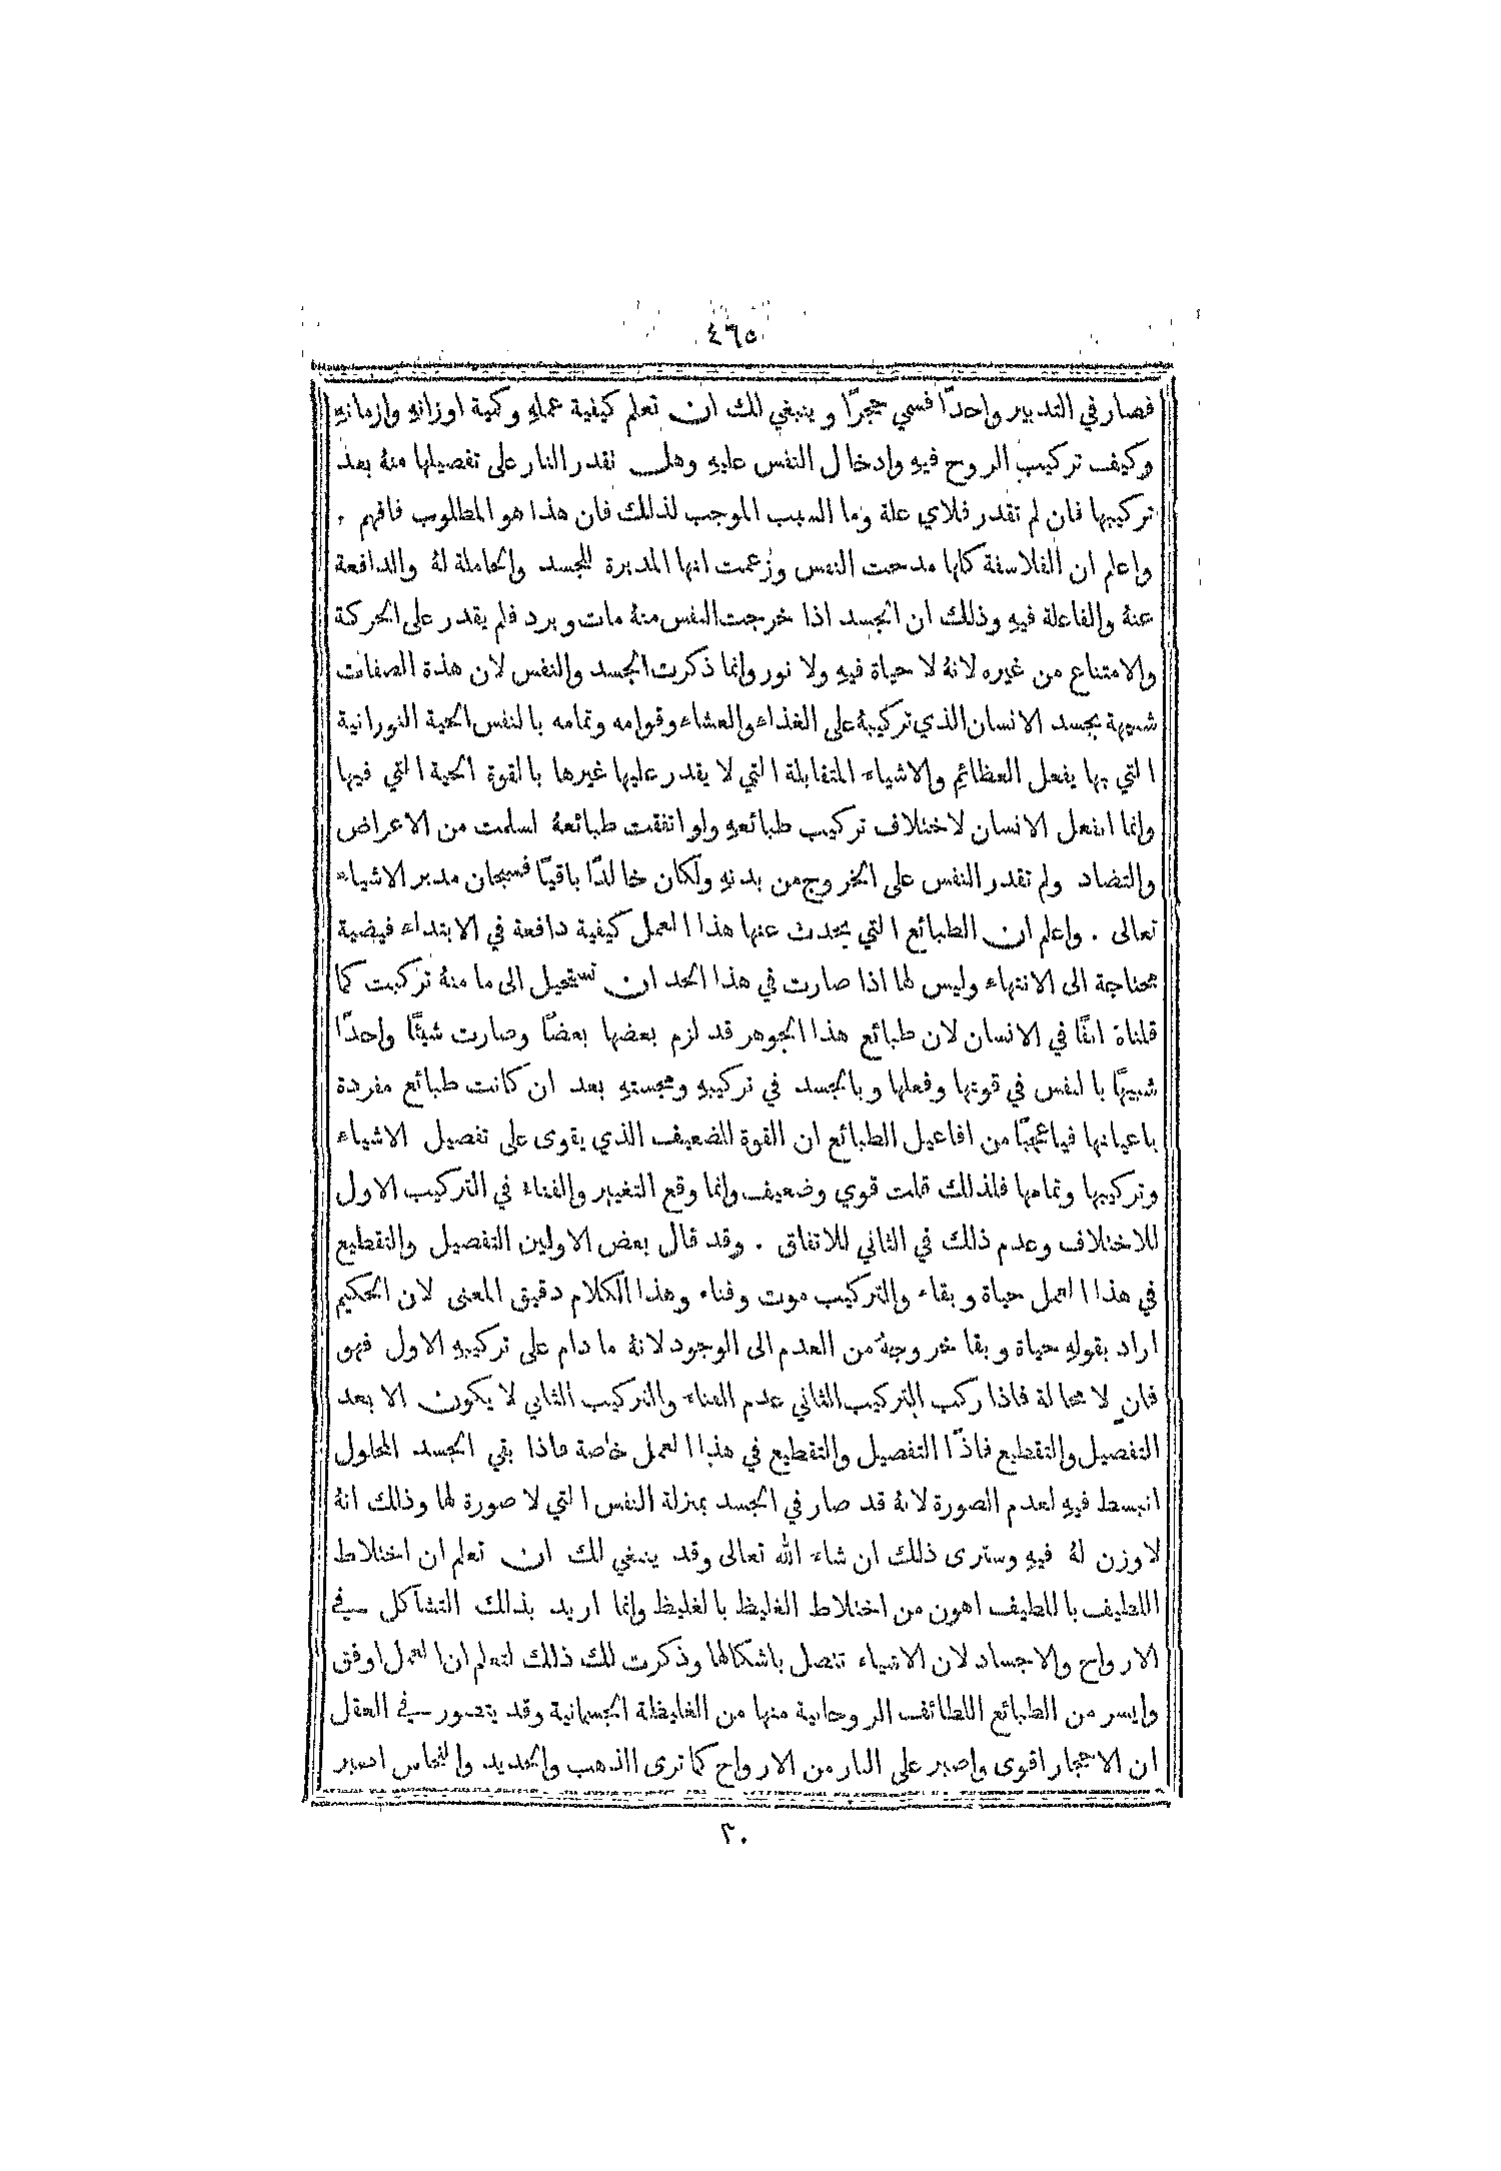 ٤٦٥
فصار في التدبير واحدًا فسمي حجرًا وينبغي لك ان تعلم كيفية عمله وكمية اوزانه وازمانه
وكيف تركيب الروح فيه وادخال النفس عليه وهل تقدر النار على تفصيلها منهُ بعد
تركيبها فان لم تقدر فلاي علة وما السبب الموجب لذلك فان هذا هو المطلوب فافهم .
واعلم ان الفلاسفة كلها مدحت النفس وزعمت انها المدبرة للجسد والحاملة لهُ والدافعة
عنهُ والفاعلة فيه وذلك ان الجسد اذا خرجت النفس منهُ مات وبرد فلم يقدر على الحركة
والامتناع من غيره لانهُ لا حياة فيه ولا نور وانما ذكرت الجسد والنفس لان هذه الصفات
شبيهة بجسد الانسان الذي تركيبهُ على الغذاء والعشاء وقوامه وتمامه بالنفس الحية النورانية
التي بها يفعل العظائم والاشياء المتقابلة التي لا يقدر عليها غيرها بالقوة الحية التي فيها
وانما انفعل الانسان لاختلاف تركيب طبائعه ولو اتفقت طبائعهُ لسلمت من الاعراض
والتضاد ولم تقدر النفس على الخروج من بدنه ولكان خالدًا باقيًا فسبحان مدبر الاشياء
تعالى . واعلم ان الطبائع التي يحدث عنها هذا العمل كيفية دافعة في الابتداء فيضية
محتاجة الى الانتهاء وليس لها اذا صارت في هذا الحد ان تستحيل الى ما منهُ تركبت كما
قلناهُ انفًا في الانسان لان طبائع هذا الجوهر قد لزم بعضها بعضًا وصارت شيئًا واحدًا
شبيهًا بالنفس في قوتها وفعلها وبالجسد في تركيبه ومجسته بعد ان كانت طبائع مفردة
باعيانها فياعجبًا من افاعيل الطبائع ان القوة للضعيف الذي يقوى على تفصيل الاشياء
وتركيبها وتمامها فلذلك قلت قوي وضعيف وانما وقع التغيير والفناء في التركيب الاول
للاختلاف وعدم ذلك في الثاني للاتفاق . وقد قال بعض الاولين التفصيل والتقطيع
في هذا العمل حياة وبقاء والتركيب موت وفناء وهذا الكلام دقيق المعنى لان الحكيم
اراد بقوله حياة وبقا خروجهُ من العدم الى الوجود لانهُ ما دام على تركيبه الاول فهو
فانٍ لا محالة فاذا ركب التركيب الثاني عدم الفناء والتركيب الثاني لا يكون الا بعد
التفصيل والتقطيع فاذًا التفصيل والتقطيع في هذا العمل خاصة فاذا بقي الجسد المحلول
انبسط فيه لعدم الصورة لانهُ قد صار في الجسد بمنزلة النفس التي لا صورة لها وذلك انهُ
لا وزن لهُ فيه وسترى ذلك ان شاء الله تعالى وقد ينبغي لك ان تعلم ان اختلاط
اللطيف باللطيف اهون من اختلاط الغليظ بالغليظ وانما اريد بذلك التشاكل في
الارواح والاجساد لان الاشياء تتصل باشكالها وذكرت لك ذلك لتعلم ان العمل اوفق
وايسر من الطبائع اللطائف الروحانية منها من الغليظة الجسمانية وقد يتصور في العقل
ان الاحجار اقوى واصبر على النار من الارواح كما ترى الذهب والحديد والنحاس اصبر
٣٠